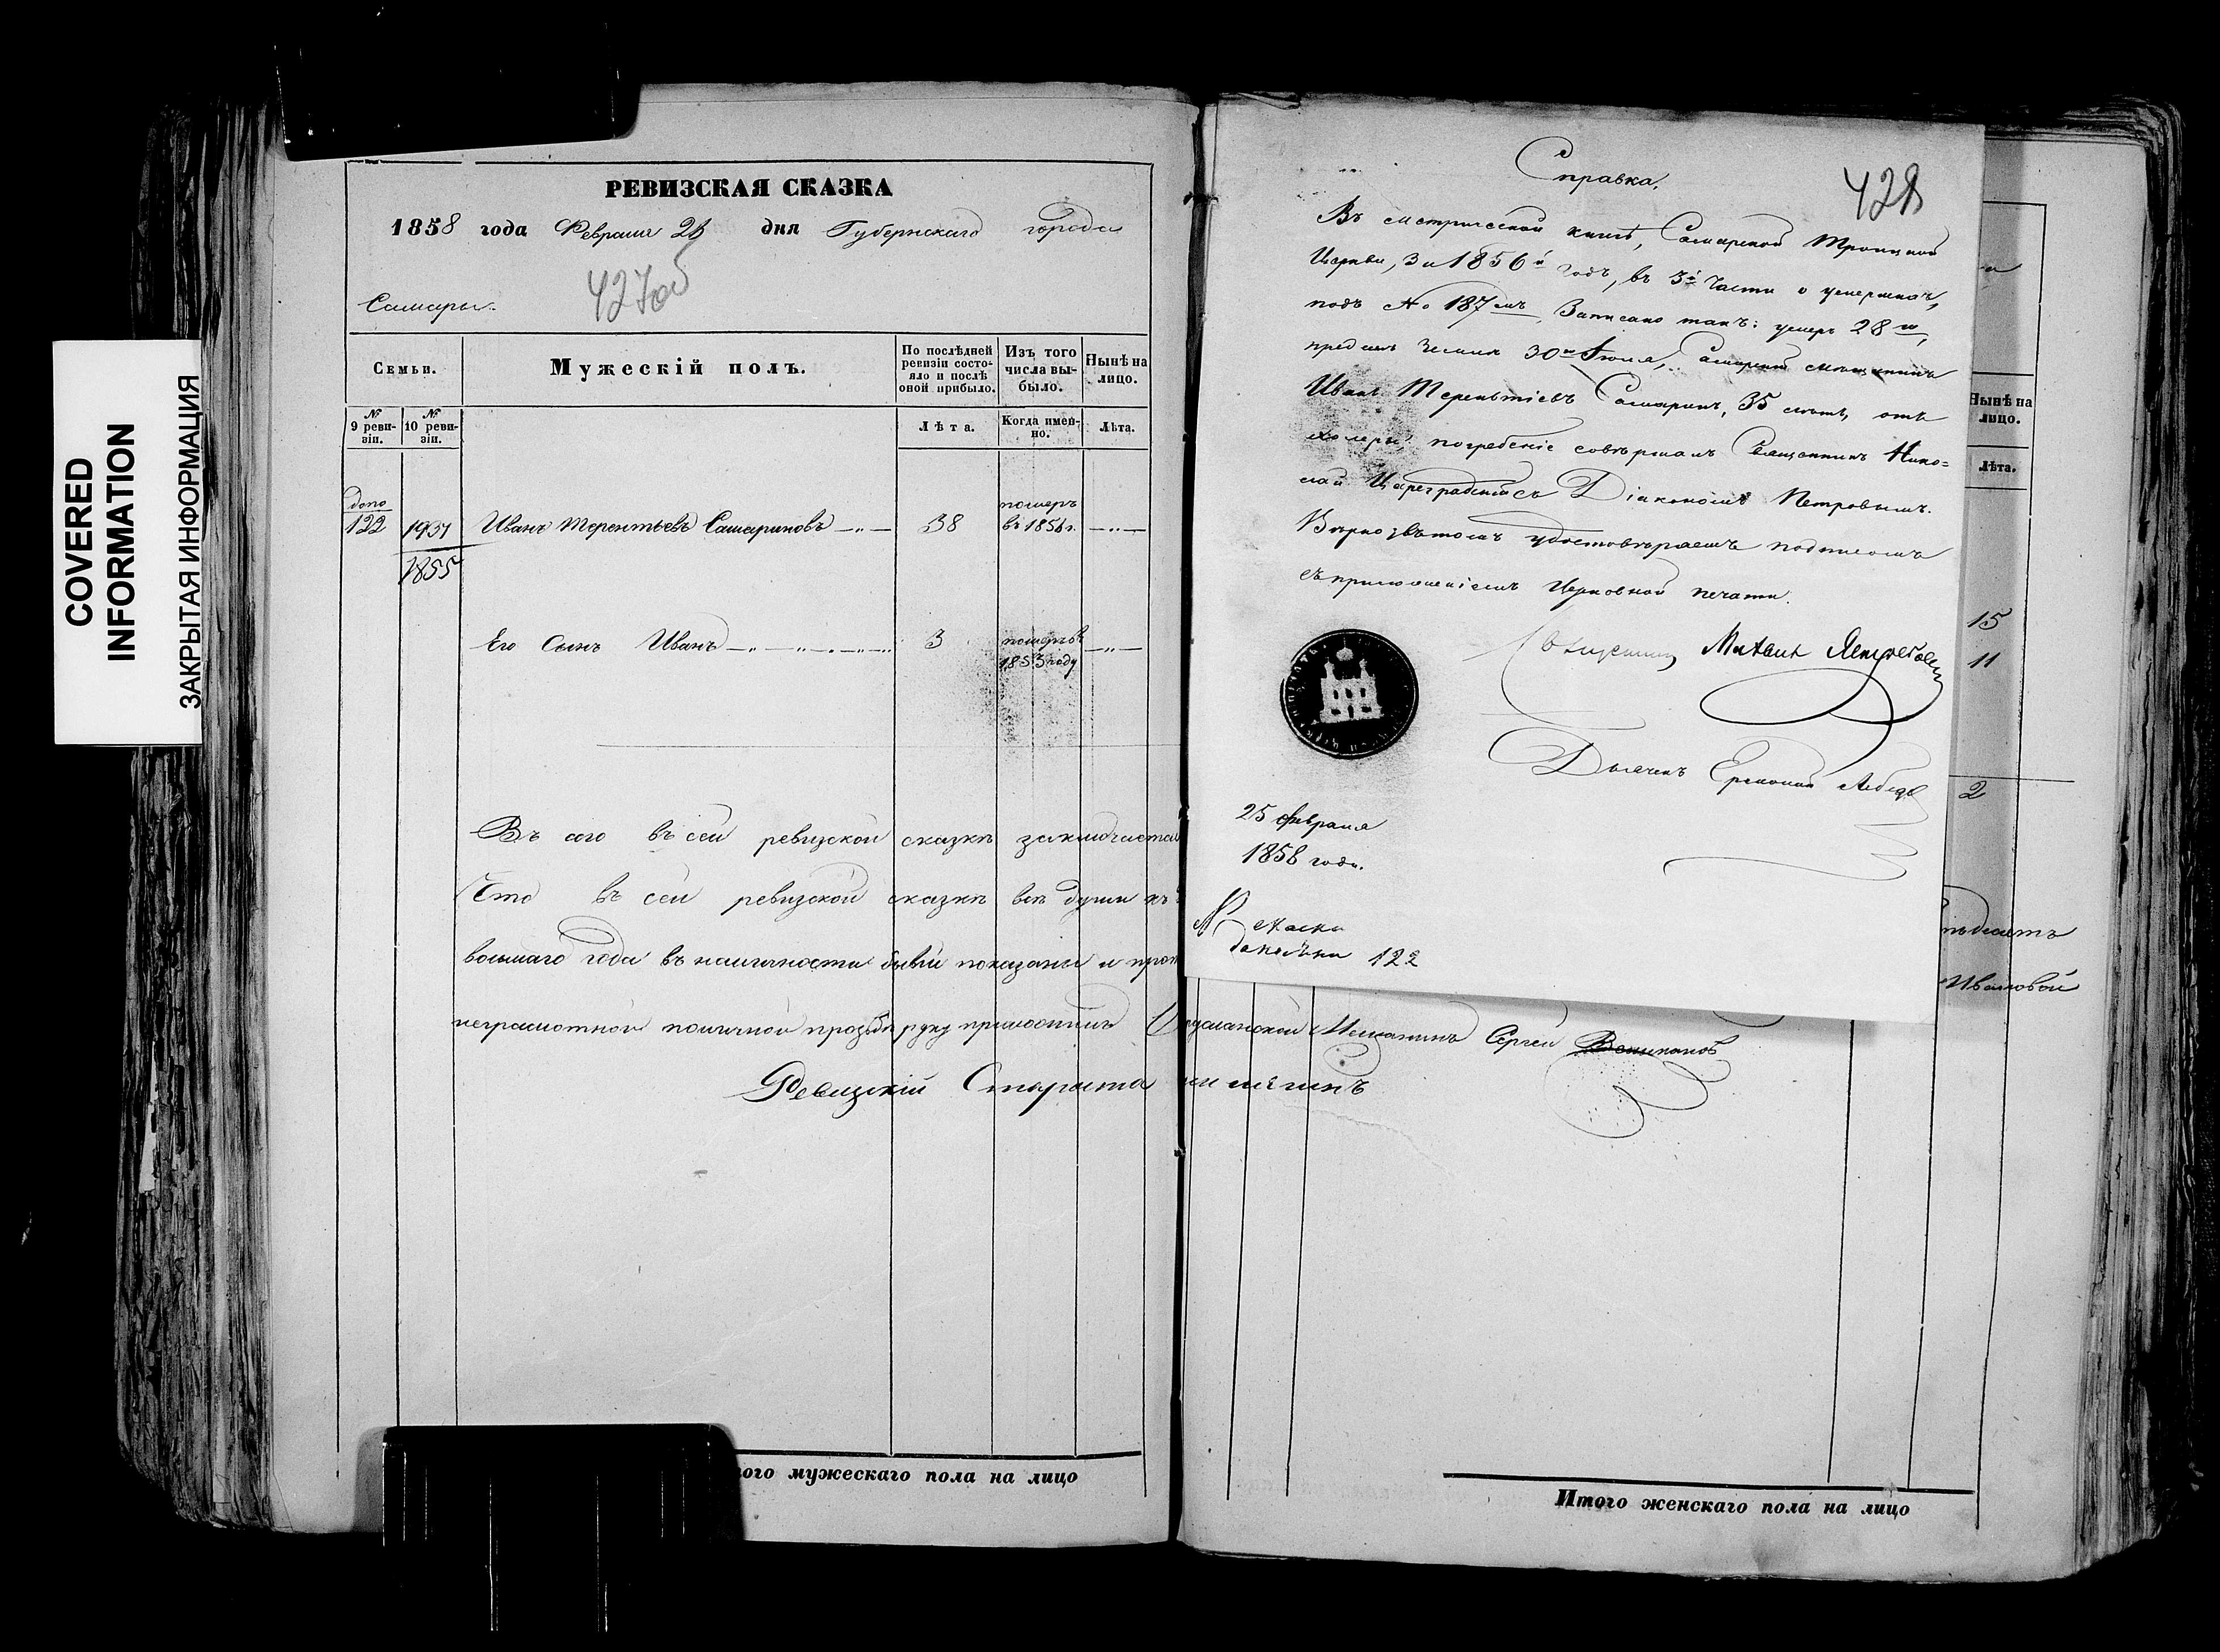 COVERED
INFORMATION
ЗАКРЫТАЯ ИНФОРМАЦИЯ
РЕВИЗСКАЯ СКАЗКА
1858 года Февраля 25 дня Губернскаго города
427об
Самары.
Семьи.
Мужескій полъ.
По послѣдней
ревизіи состо-
яло и послѣ
оной прибыло.
Изъ того
числа вы-
было.
Нынѣ на
лицо.
№
9 реви-
зіи.
№
10 реви-
зіи.
Лѣта.
Когда имен-
но.
Лѣта.
допо
122 1931 Иванъ Терентьевъ Самариновъ 38 померъ
въ 1856 г.
1855
Его Сынъ Иванъ 3 померъ въ
1853 году
въ сей ревизской сказкѣ заключается
Что въ сей ревизской сказкѣ всѣ души къ
восьмаго года въ наличности бывшіе показаны и
неграмотной по личной прозьбѣ руку приложилъ Сергей
Ревизскій Староста
Итого мужескаго пола на лицо
Справка.
428
Въ метрической книгѣ, Самарской Троицкой
Церкви, за 1856й годъ, въ 3й части о умершихъ,
подъ № 187мъ, Записано такъ: умеръ 28го,
преданъ землѣ 30го Іюля, Самарскій мѣщанинъ
Иванъ Терентіевъ Самаринъ, 35 лѣтъ, отъ
холеры; погребеніе совершалъ Священникъ Нико=
лай Цареградскій съ Діакономъ Петровымъ.
Вѣрно въ томъ удостовѣряемъ подписомъ
съ приложеніемъ Церковной печати.
Священникъ Михаилъ
Дьячекъ
25 февраля
1858 года.
№ Сказки
122
Нынѣ на
лицо.
Лѣта.
15
11
2
Ивановой
Итого женскаго пола на лицо